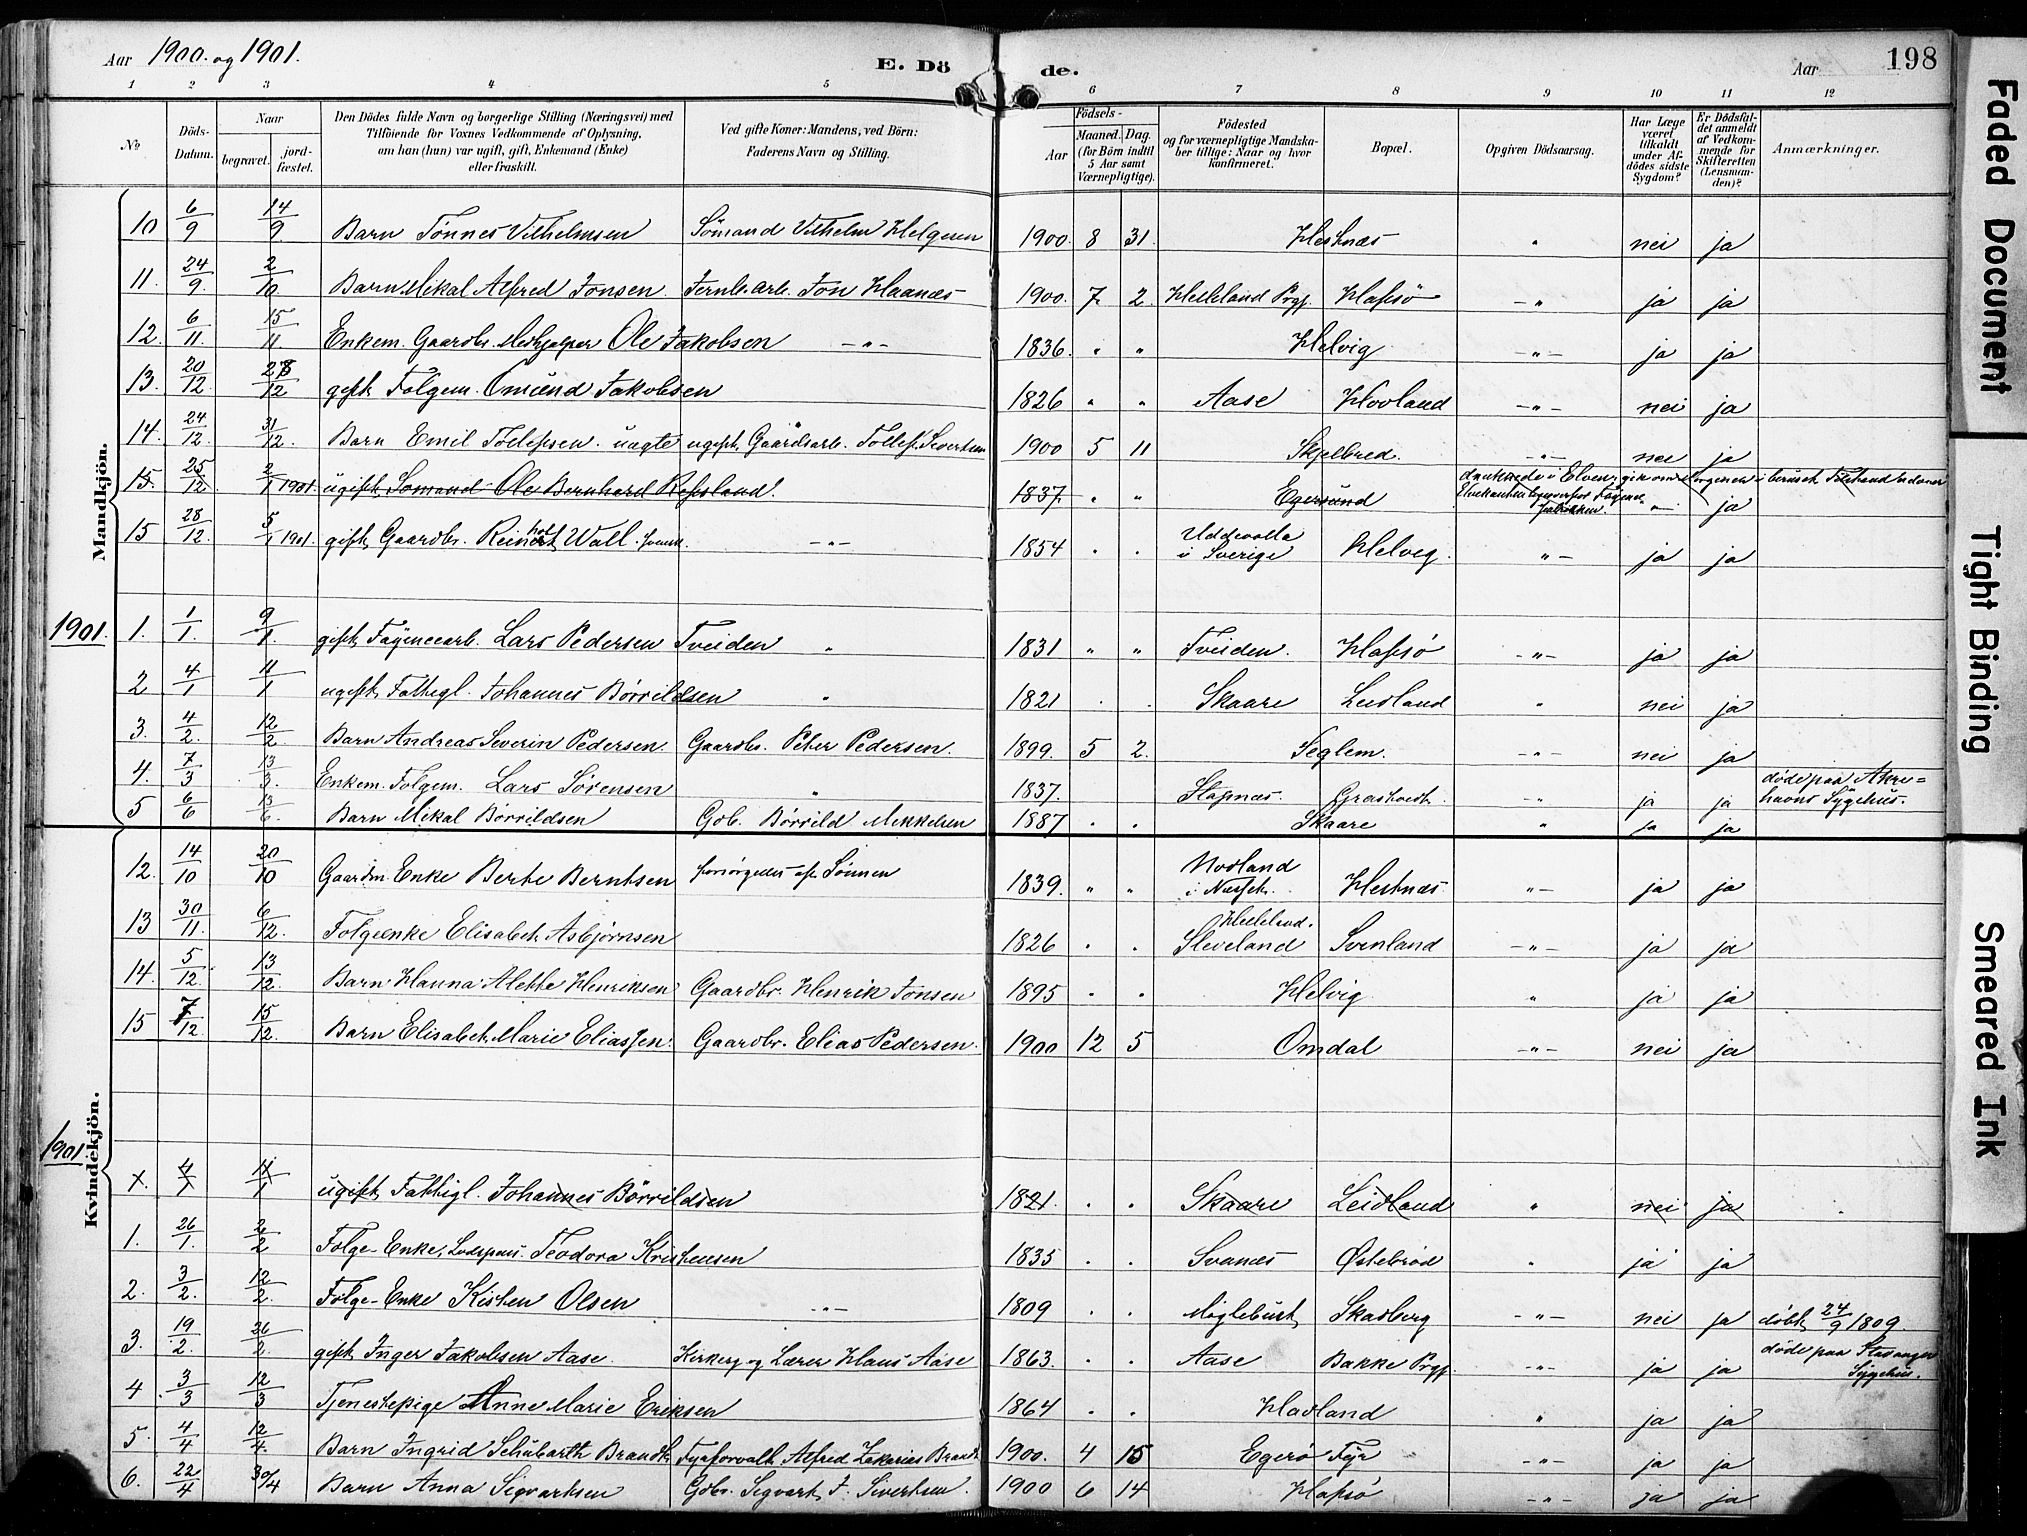 Aar 1900 og 1901. E. Dö de. Aar 198
1 2 3 4 5 6 7 8 9 10 11 12
№ Döds-Datum. Naar begravet. jord-fæstet. Den Dödes fulde Navn og borgerlige Stilling (Næringsvei) med Tilföiende for Voxnes Vedkommende af Oplysning, om han (hun) var ugift, gift, Enkemand (Enke) eller fraskilt. Ved gifte Koner: Mandens, ved Börn: Faderens Navn og Stilling. Födsels- Aar Maaned. Dag. (for Börn indtil 5 Aar samt Værnepligtige). Födested og for værnepligtige Mandska-ber tillige: Naar og hvor konfirmeret. Bopæl. Opgiven Dödsaarsag. Har Læge været tilkaldt under Af-dödes sidste Sygdom? Er Dödsfal-det anmeldt af Vedkom-mende for Skifteretten (Lensman-den)? Anmærkninger.
Mandkjön.
10 6/9 14/9 Barn Tönnes Vilhelmsen Sömand Vilhelm Helgesen 1900. 8 31. Hestnæs " nei ja
11. 24/9 2/10 Barn Mikal Alfred Jonsen. Jernb. arb. Jon Haanæs 1900. 7 2. Helleland Prgj. Hafsö -"- ja ja
12. 6/11 15/11 Enkem. Gaardbr. Medhjælper Ole Jakobsen -"- 1836. " " Helvig -"- ja ja
13. 20/12 28/12 gift Folgem. Omund Jakobsen 1826 " " Aase Hovland -"- nei ja
14. 24/12 31/12 Barn Emil Tollefsen. uægte ugift Gaardsarb. Tollef Sivertsen 1900 5 11 Skjelbred. -"- nei ja
15. 25/12 2/1 1901. ugift Sømand Ole Bernhard Refsland. 1837. " " Egersund druknede i Elven, ja
15 28/12 5/1 1901. gift Gaardbr. Reinholt Wall. svensk -"- 1854 . . Uddevalla i Sverige Helvig. "- ja ja
1901. 1. 1/1. 9/1. gift Fayencearb. Lars Pedersen Tveiden " 1831 " " Tveiden. Hafsø -"- ja ja
2 4/1 11/1 ugift Fattigl. Johannes Börrildsen " 1821 . . Skaare Leidland " nei ja
3. 4/2 12/2. Barn Andreas Severin Pedersen. Gaardbr. Peter Pedersen. 1899. 5 2. Seglem. -"- nei ja
4. 7/3 13/3. Enkem. Folgem. Lars Sørensen " 1837. Stapnæs. Grastveit -"- ja ja døde paa Akre=havns Sygehus.
5 6/6 13/6. Barn Mikal Börrildsen Gbr. Börrild Mikkelsen 1887 . . Skaare " ja ja
Kvindekjön.
12. 14/10 20/10 Gaardm. Enke Berte Berntsen forsørgedes af Sønnen 1839. " " Hestnæs. "- ja ja
13 30/11. 6/12. Folgeenke Elisabeth Asbjørnsen 1826 . . Helleland. Sleveland Svenland -"- ja ja
14. 5/12. 13/12. Barn Hanna Alette Henriksen Gaardbr. Henrik Jonsen 1895 . . Helvig " ja ja
15 7/12 15/12. Barn Elisabeth Marie Eliassen. Gaardbr. Elias Pedersen. 1900 12 5 Omdal -"- nei ja
1901.
X. 4/1 11/1 ugift Fattigl. Johannes Börrildsen 1821. . . Skaare Leidland " nei ja
1. 26/1. 2/2 Folge-Enke, Teodora Kristensen 1835 . . Svanæs Østebrød " ja ja
2. 3/2. 12/2. Folge-Enke Kisten Olsen -"- 1809 . . Møglebust Skadberg -"- nei ja døbt 24/9 1809.
3. 19/2. 26/2. gift Inger Jakobsen Aase. Kirkesg. og Lærer Hans Aase 1863. . . Aase Bakke Prgj. -"- ja ja døde paa Stavanger Sygehus.
4 3/3 12/3 Tjenestepige Anne Marie Eriksen 1864 . . Havland " ja ja
5. 4/4 12/4. Barn Ingrid Schübarth Brandt Fyrforvalt. Alfred Zakarias Brandt 1900. 4 15 Egerø Fyr -"- ja ja
6. 22/4 30/4 Barn Anna Sigvartsen Gbr. Sigvart J. Sivertsen. 1900 6 14 Hafsø -"- ja ja
Faded Document
Tight Binding
Smeared Ink